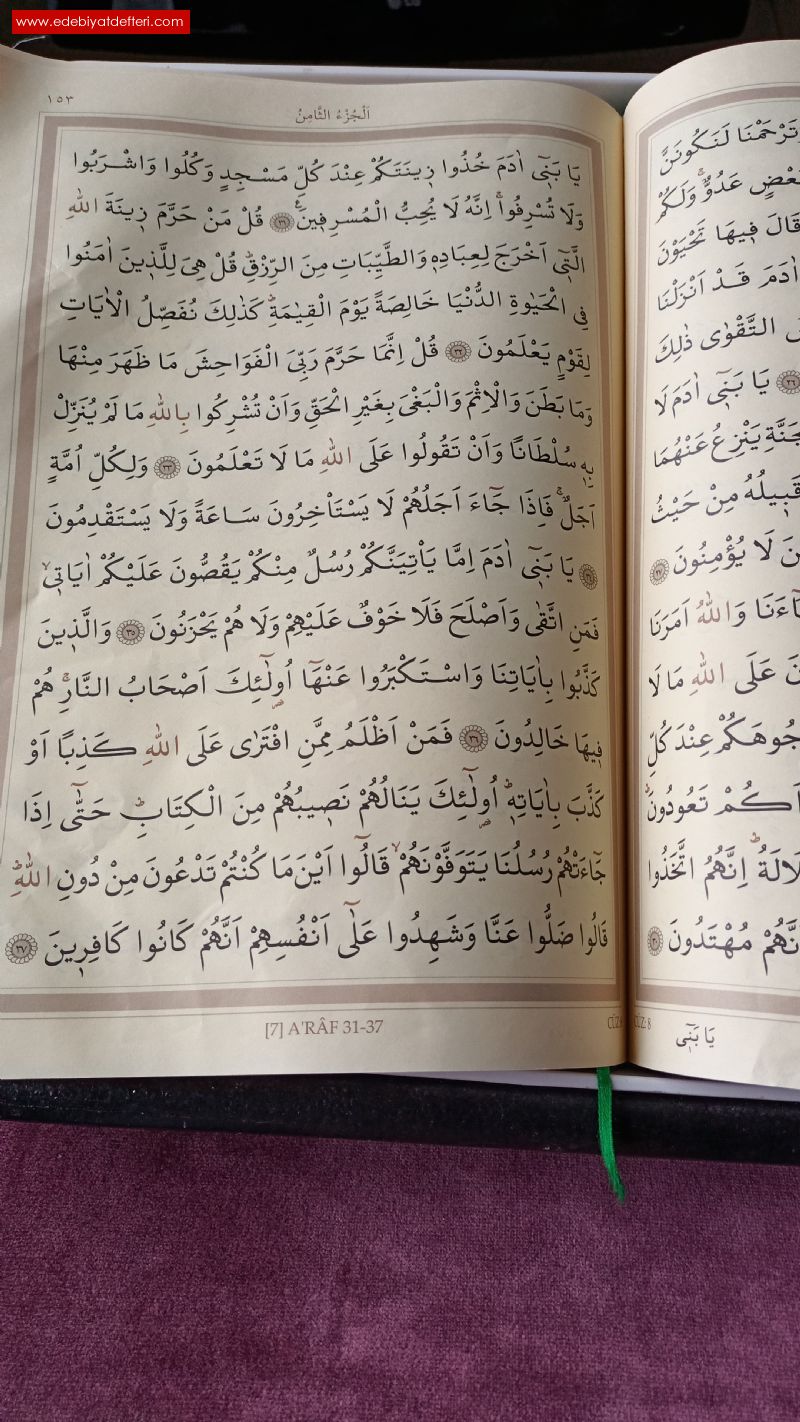 www.edebiyatdefteri.com
١٥٣
اَلْجُزْءُ الثَّامِنُ
يَا بَنٖٓي اٰدَمَ خُذُوا زٖينَتَكُمْ عِنْدَ كُلِّ مَسْجِدٍ وَكُلُوا وَاشْرَبُوا
وَلَا تُسْرِفُواۚ اِنَّهُ لَا يُحِبُّ الْمُسْرِفٖينَۚ ﴿٣١﴾ قُلْ مَنْ حَرَّمَ زٖينَةَ اللّٰهِ
الَّتٖٓي اَخْرَجَ لِعِبَادِهٖ وَالطَّيِّبَاتِ مِنَ الرِّزْقِؕ قُلْ هِيَ لِلَّذٖينَ اٰمَنُوا
فِي الْحَيٰوةِ الدُّنْيَا خَالِصَةً يَوْمَ الْقِيٰمَةِؕ كَذٰلِكَ نُفَصِّلُ الْاٰيَاتِ
لِقَوْمٍ يَعْلَمُونَ ﴿٣٢﴾ قُلْ اِنَّمَا حَرَّمَ رَبِّيَ الْفَوَاحِشَ مَا ظَهَرَ مِنْهَا
وَمَا بَطَنَ وَالْاِثْمَ وَالْبَغْيَ بِغَيْرِ الْحَقِّ وَاَنْ تُشْرِكُوا بِاللّٰهِ مَا لَمْ يُنَزِّلْ
بِهٖ سُلْطَانًا وَاَنْ تَقُولُوا عَلَى اللّٰهِ مَا لَا تَعْلَمُونَ ﴿٣٣﴾ وَلِكُلِّ اُمَّةٍ
اَجَلٌۚ فَاِذَا جَٓاءَ اَجَلُهُمْ لَا يَسْتَاْخِرُونَ سَاعَةً وَلَا يَسْتَقْدِمُونَ
﴿٣٤﴾ يَا بَنٖٓي اٰدَمَ اِمَّا يَاْتِيَنَّكُمْ رُسُلٌ مِنْكُمْ يَقُصُّونَ عَلَيْكُمْ اٰيَاتٖيۙ
فَمَنِ اتَّقٰى وَاَصْلَحَ فَلَا خَوْفٌ عَلَيْهِمْ وَلَا هُمْ يَحْزَنُونَ ﴿٣٥﴾ وَالَّذٖينَ
كَذَّبُوا بِاٰيَاتِنَا وَاسْتَكْبَرُوا عَنْهَٓا اُو۬لٰٓئِكَ اَصْحَابُ النَّارِۚ هُمْ
فٖيهَا خَالِدُونَ ﴿٣٦﴾ فَمَنْ اَظْلَمُ مِمَّنِ افْتَرٰى عَلَى اللّٰهِ كَذِبًا اَوْ
كَذَّبَ بِاٰيَاتِهٖؕ اُو۬لٰٓئِكَ يَنَالُهُمْ نَصٖيبُهُمْ مِنَ الْكِتَابِؕ حَتّٰٓى اِذَا
جَٓاءَتْهُمْ رُسُلُنَا يَتَوَفَّوْنَهُمْۙ قَالُٓوا اَيْنَ مَا كُنْتُمْ تَدْعُونَ مِنْ دُونِ اللّٰهِؕ
قَالُوا ضَلُّوا عَنَّا وَشَهِدُوا عَلٰٓى اَنْفُسِهِمْ اَنَّهُمْ كَانُوا كَافِرٖينَ ﴿٣٧﴾
[7] A'RÂF 31-37
وَتَرْحَمْنَا لَنَكُونَنَّ
عَدُوٌّۚ وَلَكُمْ
قَالَ فٖيهَا تَحْيَوْنَ
اٰدَمَ قَدْ اَنْزَلْنَا
التَّقْوٰى ذٰلِكَ
﴿٢٦﴾ يَا بَنٖٓي اٰدَمَ لَا
يَنْزِعُ عَنْهُمَا
قَبٖيلُهُ مِنْ حَيْثُ
لَا يُؤْمِنُونَ ﴿٢٧﴾
وَاللّٰهُ اَمَرَنَا
عَلَى اللّٰهِ مَا لَا
عِنْدَ كُلِّ
تَعُودُونَؕ
اِنَّهُمُ اتَّخَذُوا
مُهْتَدُونَ ﴿٣٠﴾
CÜZ: 8
يَا بَنٖٓي